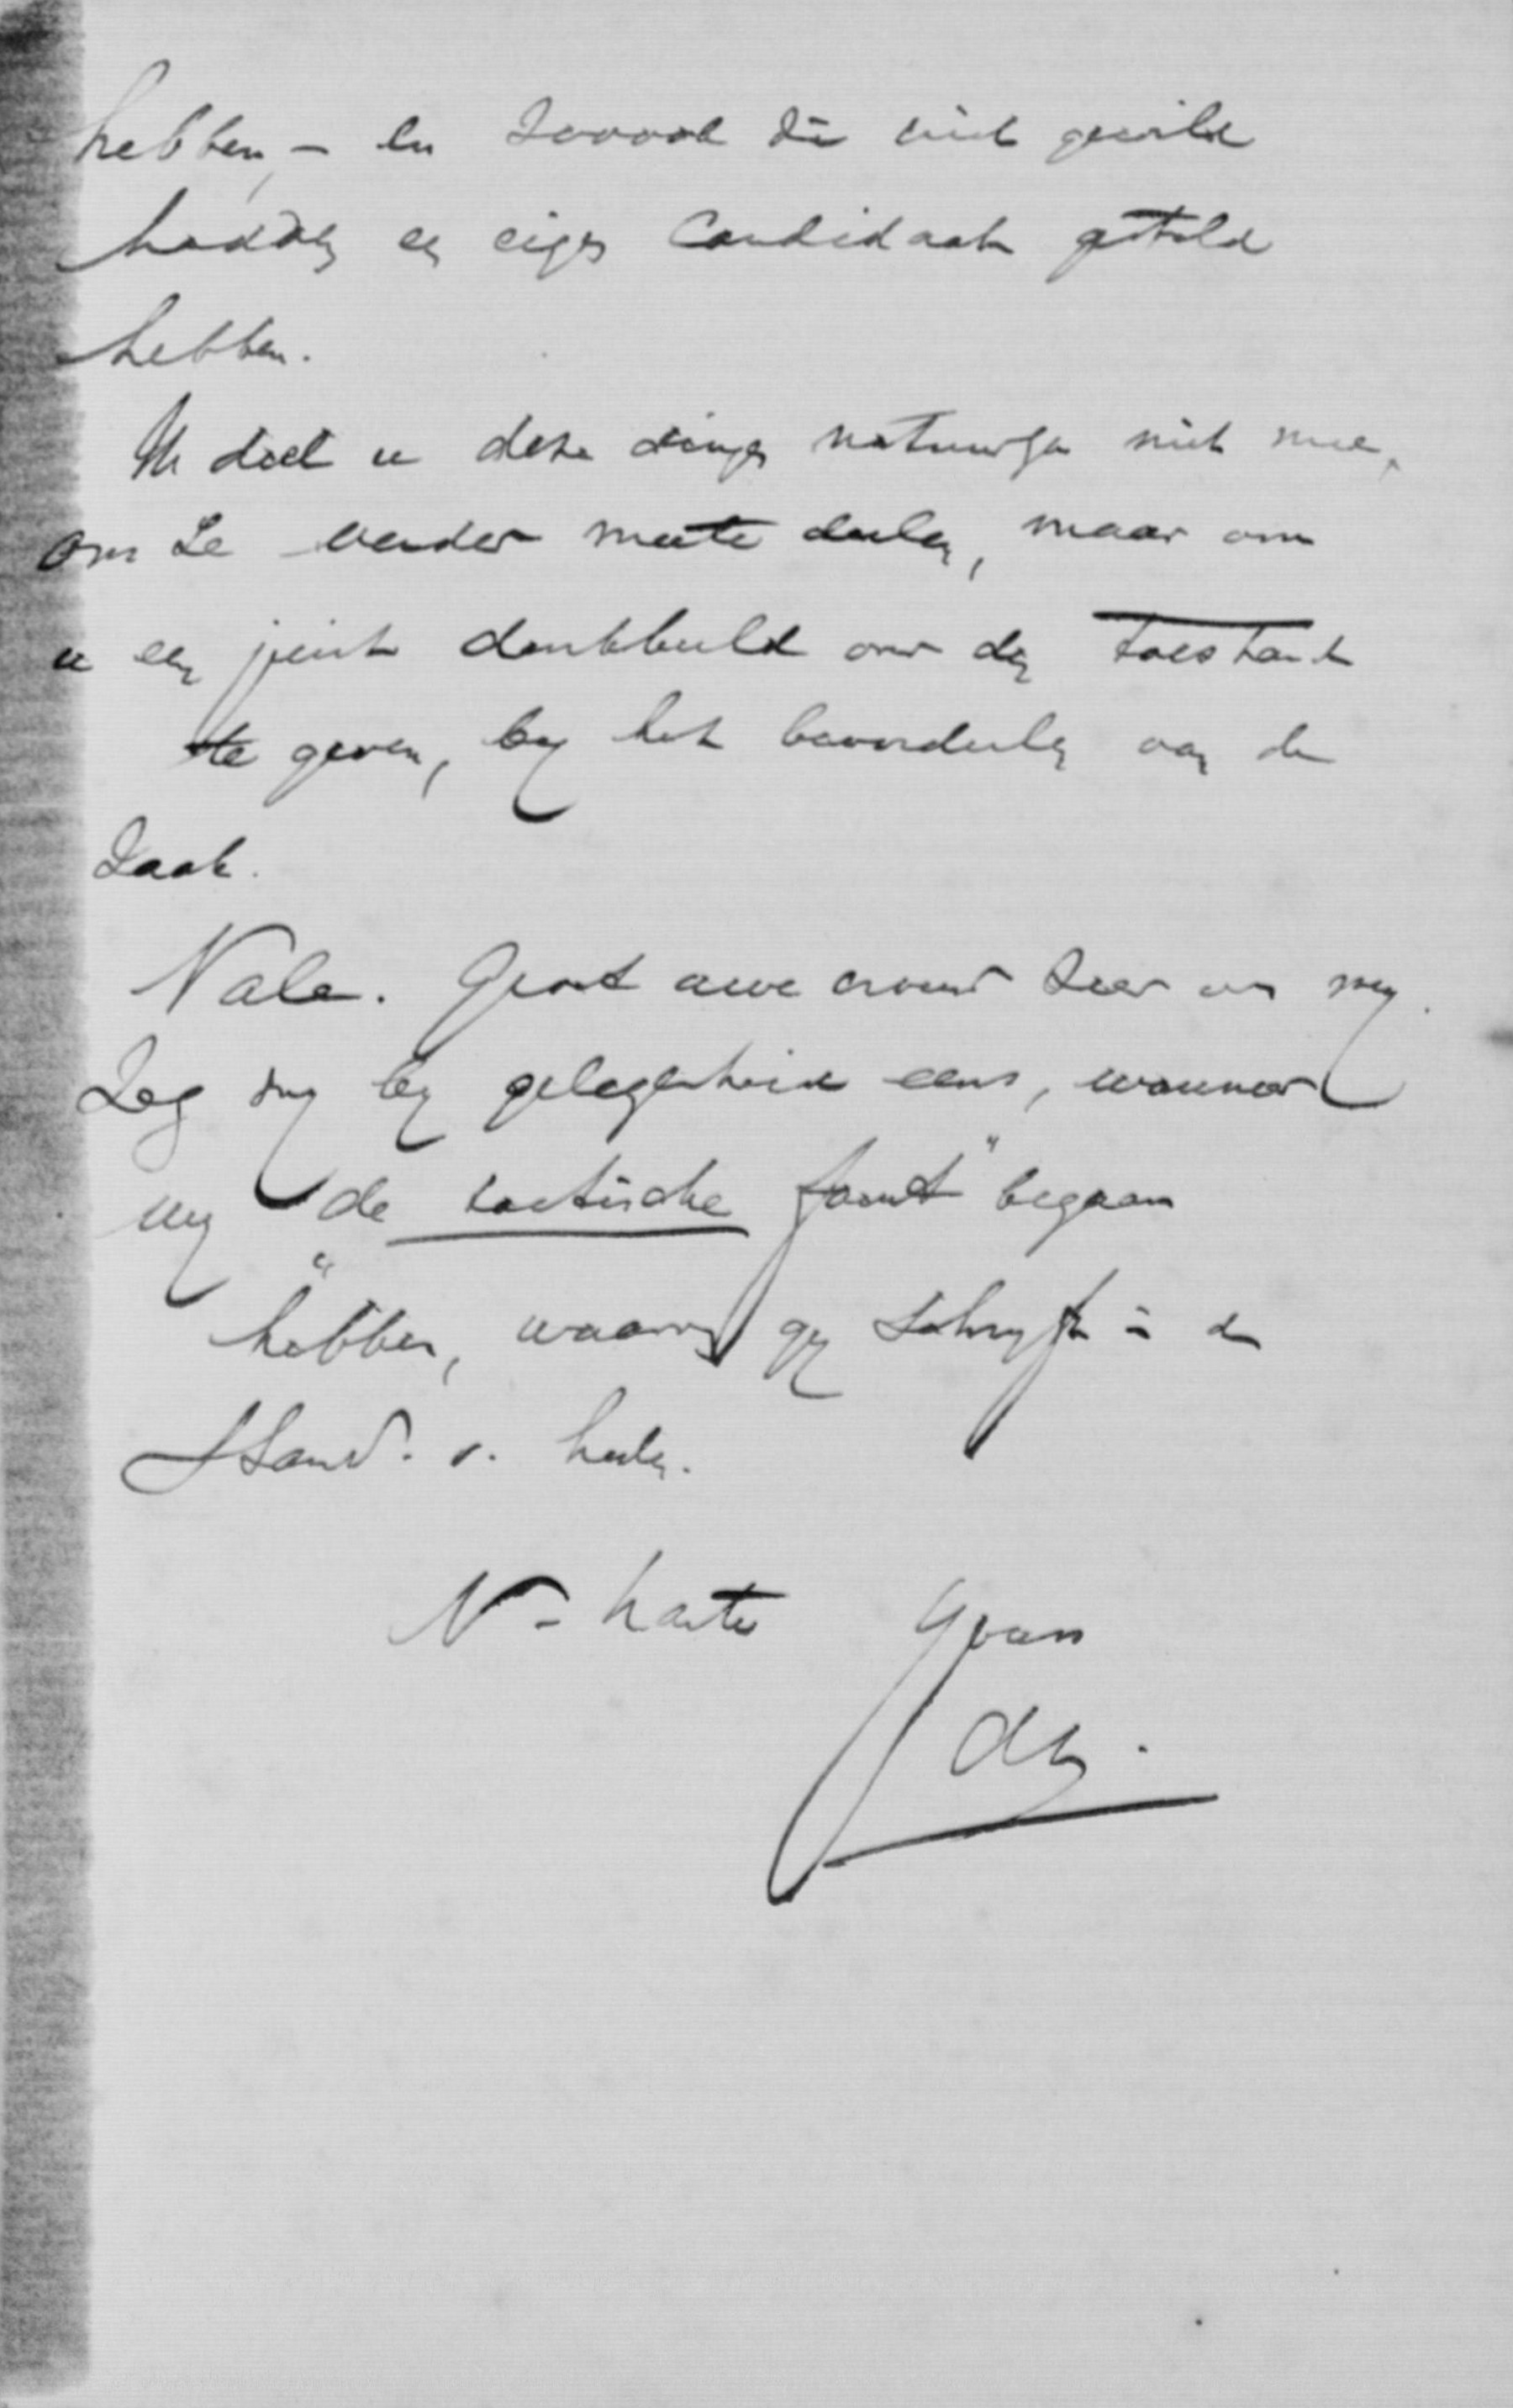 hebben, - en zoo ook die niet gewild
hadden een eigen candidaat gesteld
hebben.
Ik deel u deze dingen natuurlijk niet mee,
om ze verder mee te deelen, maar om
u een juist denkbeeld over den toestand
te geven, by het beoordeelen van de
zaak.
Vale. Groet uwe vrouw zeer van my.
Zeg my by gelegenheid eens, wanneer
wy "de tactische fout" begaan
hebben, waarvan gy schryft in de
Stand. v. heden.
v. harte